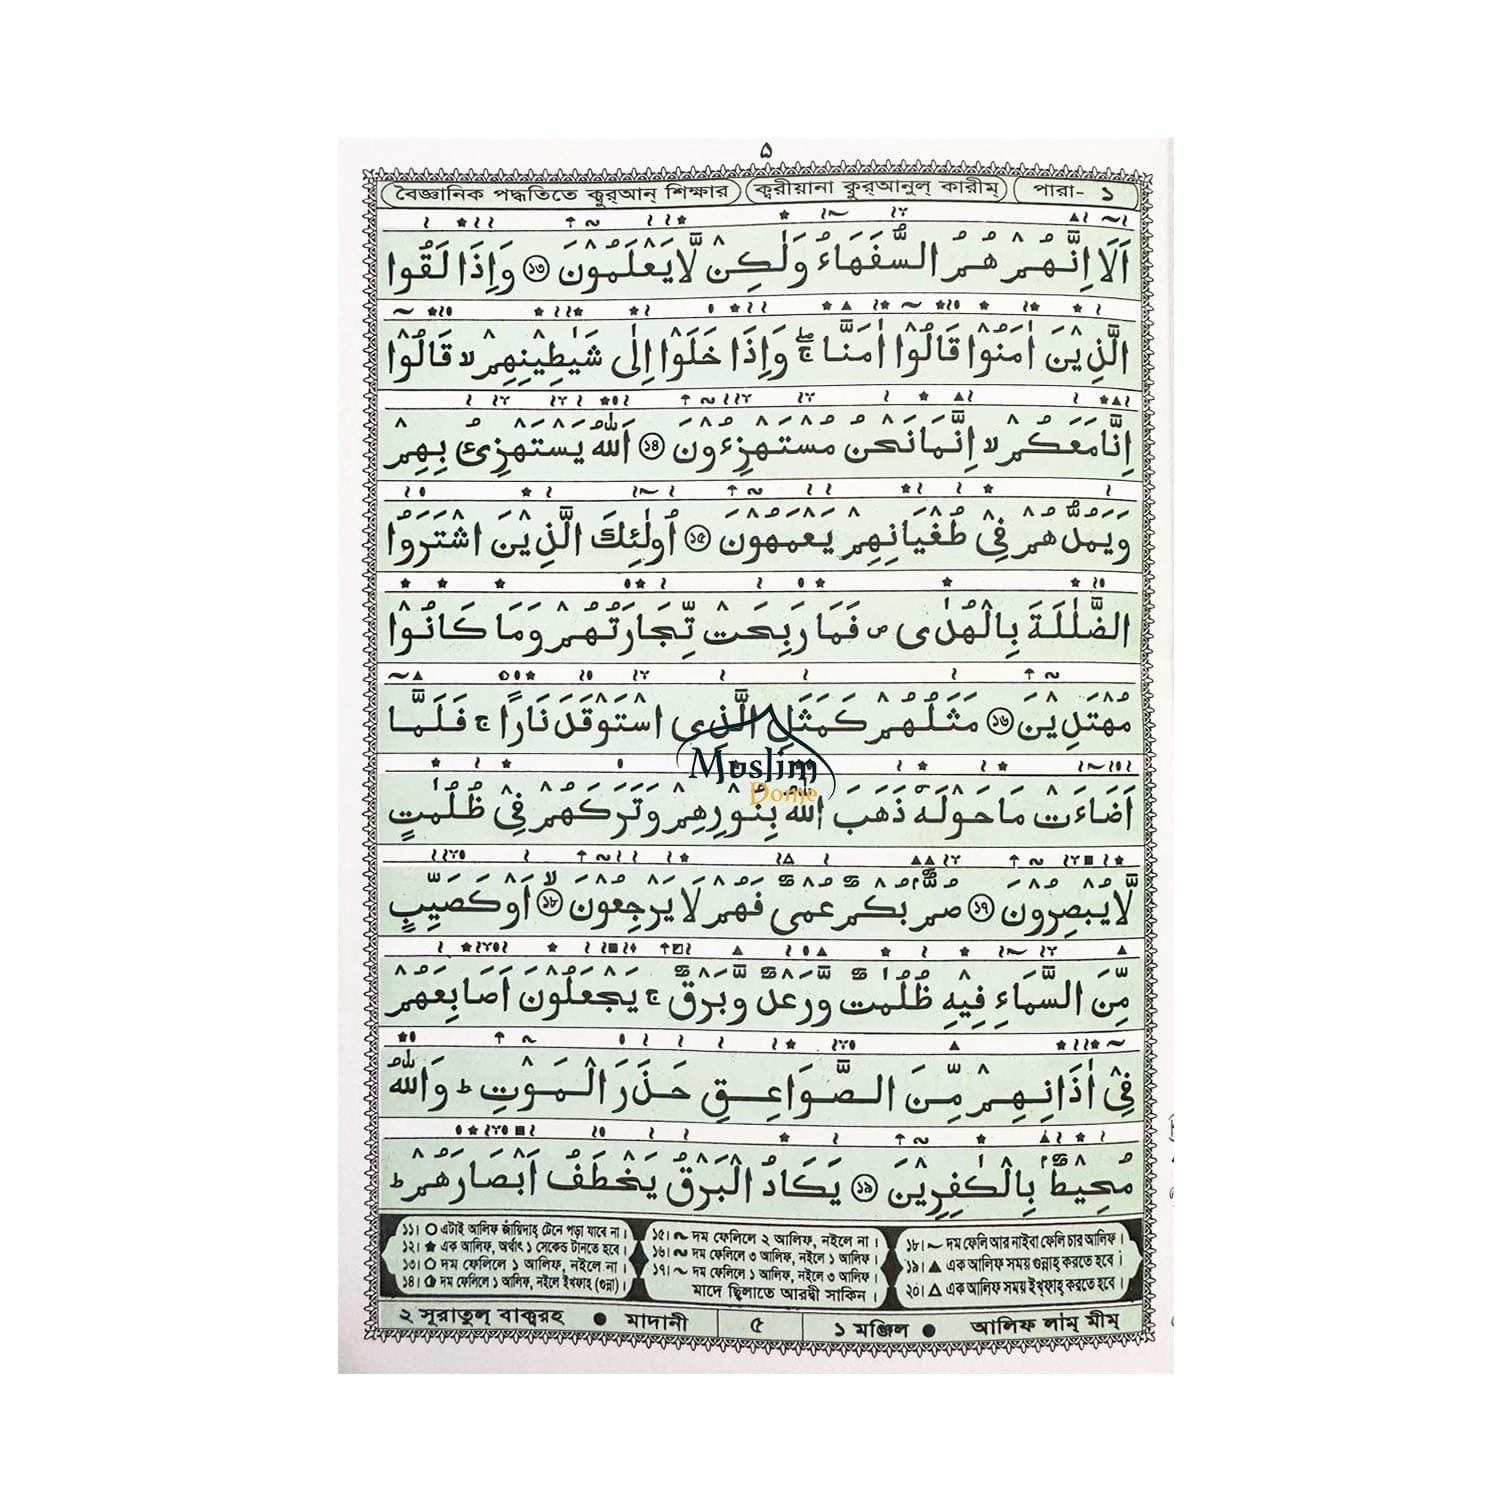 ৫
বৈজ্ঞানিক পদ্ধতিতে ক্বুর্আন্ শিক্ষার ক্বারীয়ানা ক্বুর্আনুল্ কারীম্ পারা- ১
اَلَا اِنَّهُمْ هُمُ السُّفَهَاءُ وَلٰكِنْ لَّا يَعْلَمُوْنَ ১৩ وَاِذَا لَقُوا
الَّذِيْنَ اٰمَنُوْا قَالُوْا اٰمَنَّا ۚۖ وَاِذَا خَلَوْا اِلٰى شَيٰطِيْنِهِمْ ۙ قَالُوْا
اِنَّا مَعَكُمْ ۙ اِنَّمَا نَحْنُ مُسْتَهْزِءُوْنَ ১৪ اَللّٰهُ يَسْتَهْزِئُ بِهِمْ
وَيَمُدُّهُمْ فِيْ طُغْيَانِهِمْ يَعْمَهُوْنَ ১৫ اُولٰئِكَ الَّذِيْنَ اشْتَرَوُا
الضَّلٰلَةَ بِالْهُدٰى ۖ فَمَا رَبِحَتْ تِّجَارَتُهُمْ وَمَا كَانُوْا
مُهْتَدِيْنَ ১৬ مَثَلُهُمْ كَمَثَلِ الَّذِى اسْتَوْقَدَ نَارًا ۚ فَلَمَّا
Muslim
Dome
اَضَاءَتْ مَا حَوْلَهٗ ذَهَبَ اللّٰهُ بِنُوْرِهِمْ وَتَرَكَهُمْ فِيْ ظُلُمٰتٍ
لَّا يُبْصِرُوْنَ ১৭ صُمٌّ بُكْمٌ عُمْىٌ فَهُمْ لَا يَرْجِعُوْنَ ১৮ ۙ اَوْ كَصَيِّبٍ
مِّنَ السَّمَاءِ فِيْهِ ظُلُمٰتٌ وَّرَعْدٌ وَّبَرْقٌ ۚ يَجْعَلُوْنَ اَصَابِعَهُمْ
فِيْ اٰذَانِهِمْ مِّنَ الصَّوَاعِقِ حَذَرَ الْمَوْتِ ؕ وَاللّٰهُ
مُحِيْطٌ بِالْكٰفِرِيْنَ ১৯ يَكَادُ الْبَرْقُ يَخْطَفُ اَبْصَارَهُمْ ؕ
১১। ○ এটাই আলিফ জায়িদাহ্ টেনে পড়া যাবে না।
১২। ★ এক আলিফ, অর্থাৎ ১ সেকেন্ড টানতে হবে।
১৩। ○ দম ফেলিলে ১ আলিফ, নইলে না।
১৪। ◐ দম ফেলিলে ১ আলিফ, নইলে ইখফাহ (গুন্না)।
১৫। ~ দম ফেলিলে ২ আলিফ, নইলে না।
১৬। ~ দম ফেলিলে ৩ আলিফ, নইলে ১ আলিফ।
১৭। ~ দম ফেলিলে ১ আলিফ, নইলে ৩ আলিফ।
মাদে ছিলাতে আরদ্বী সাকিন।
১৮। ~ দম ফেলি আর নাইবা ফেলি চার আলিফ।
১৯। ▲ এক আলিফ সময় গুন্নাহ্ করতে হবে।
২০। △ এক আলিফ সময় ইখ্ফাহ্ করতে হবে।
২ সূরাতুল্ বাক্বরহ ● মাদানী ৫ ১ মঞ্জিল ● আলিফ লাম্ মীম্